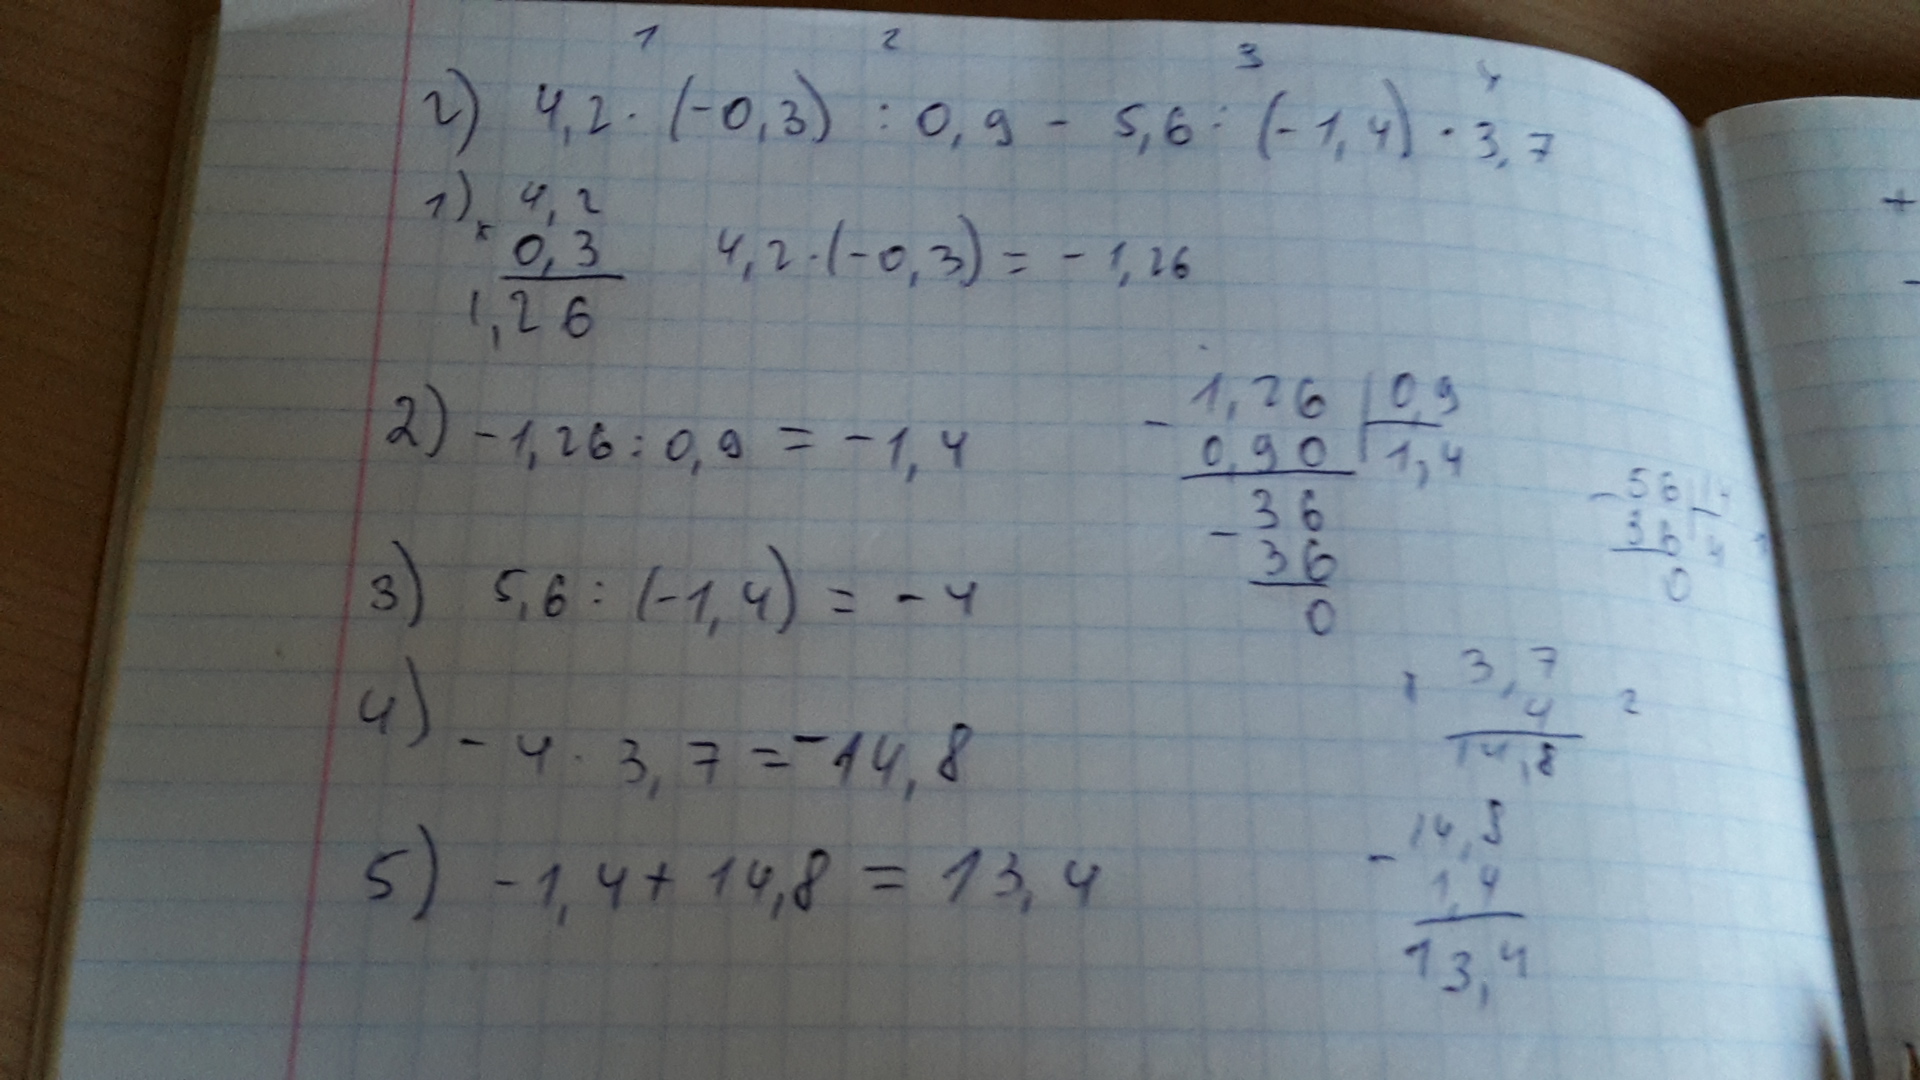 1 2 3 4
г) 4,2 · (-0,3) : 0,9 - 5,6 : (-1,4) · 3,7
1) × 4,2
0,3
1,26
4,2 · (-0,3) = - 1,26
2) - 1,26 : 0,9 = - 1,4
- 1,26 | 0,9
0,90 | 1,4
- 36
36
0
- 56 | 14
36 | 4
0
3) 5,6 : (-1,4) = - 4
4) - 4 · 3,7 = -14,8
3,7
4 2
14,8
5) - 1,4 + 14,8 = 13,4
- 14,8
1,4
13,4
+
-